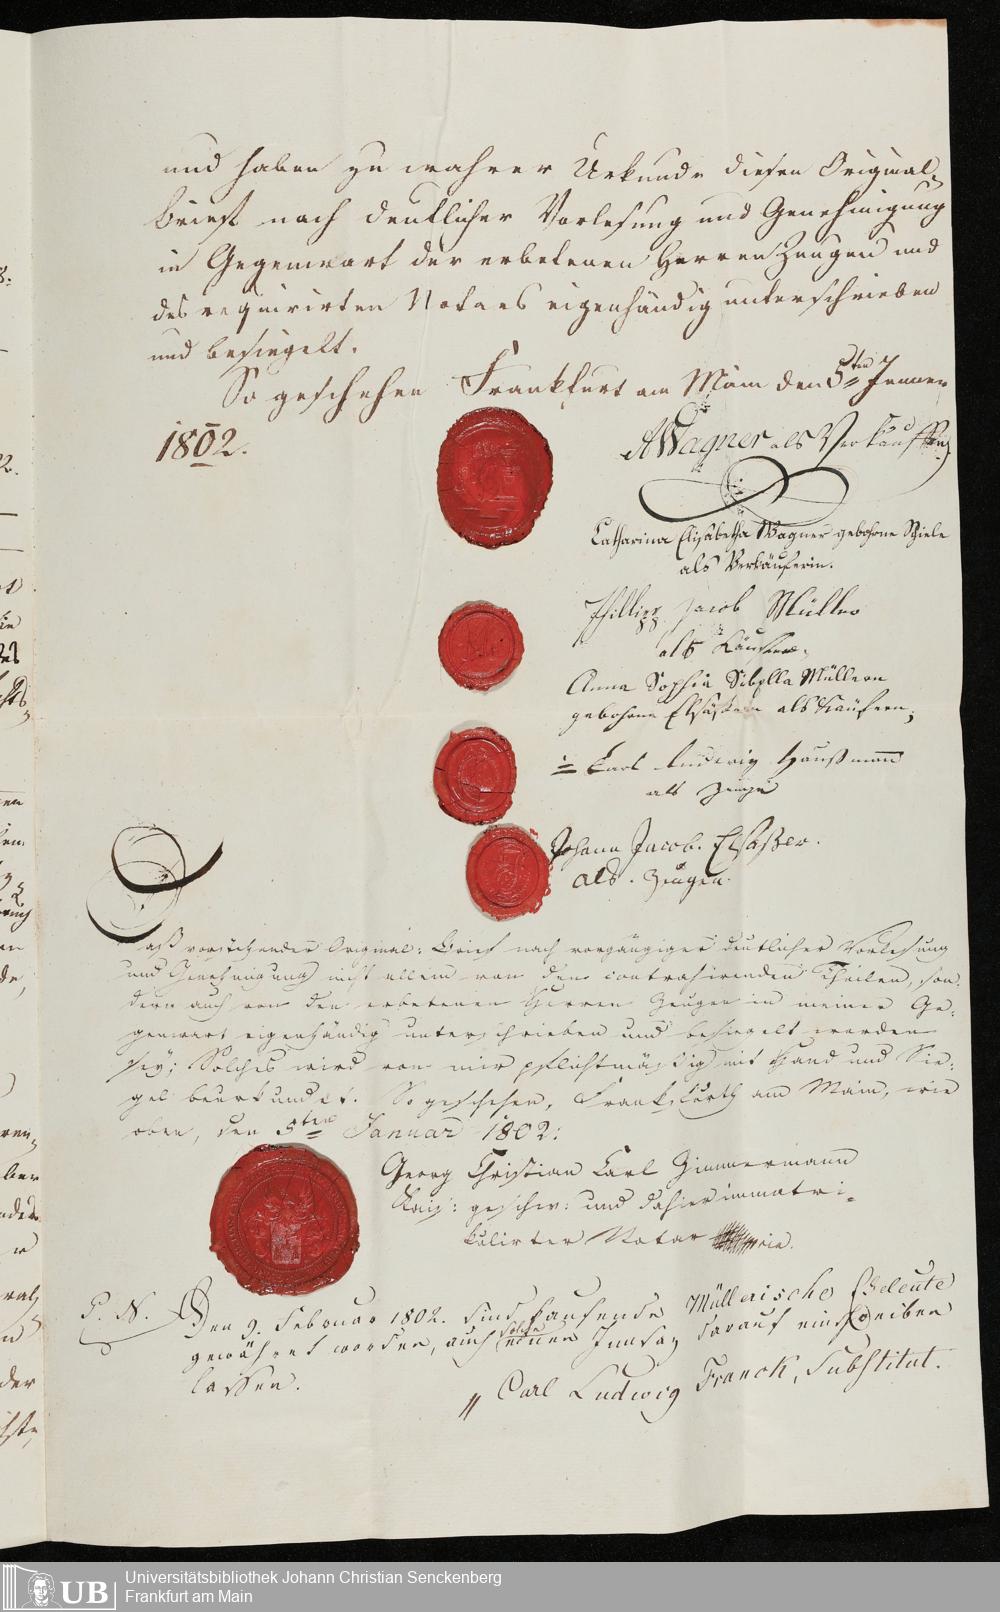 und haben zu wahrer Urkunde diesen Original-
brief nach deutlicher Vorlesung und Genehmigung
in Gegenwart der erbetenen Herren Zeugen und
des requirirten Notars eigenhändig unterschrieben
und besiegelt.
So geschehen Frankfurt am Main den 5ten Jenner
1802.
Wagner als Verkäuffer
Catharina Elisabetha Wagner gebohrne Schiele
als Verkäuferin.
Phillipp Jacob Müller
als Käufer.
Anna Sophia Sibylla Müllern
gebohrne Elsäßern als Käufern;
Carl Ludwig Haußmann
als Zeuge
Johann Jacob. Elsäßer.
als. Zeugen.
Daß vorsitzender Original: Brief nach vorgängiger deutlicher Vorlesung
und Genehmigung nicht allein von den contrahirenden Theilen, son-
dern auch von den erbetenen Herren Zeugen in meiner Ge-
genwart eigenhändig unterschrieben und besiegelt worden
sey; Solches wird von mir pflichtmäßig mit Hand und Sie-
gel beurkundet. So geschehen, Franckfurth am Main, wie
oben, den 5ten Januar 1802.
Georg Christian Carl Zimmermann
Kais: geschw: und dahier immatri-
kulirter Notar
P. N. Den 9. Februar 1802. sind kaufende Müllerische Eheleute
gewähret worden, auch solche Innsaz darauf einschreiben
lassen.
" Carl Ludwig Franck, Substitut.
UB
Universitätsbibliothek Johann Christian Senckenberg
Frankfurt am Main